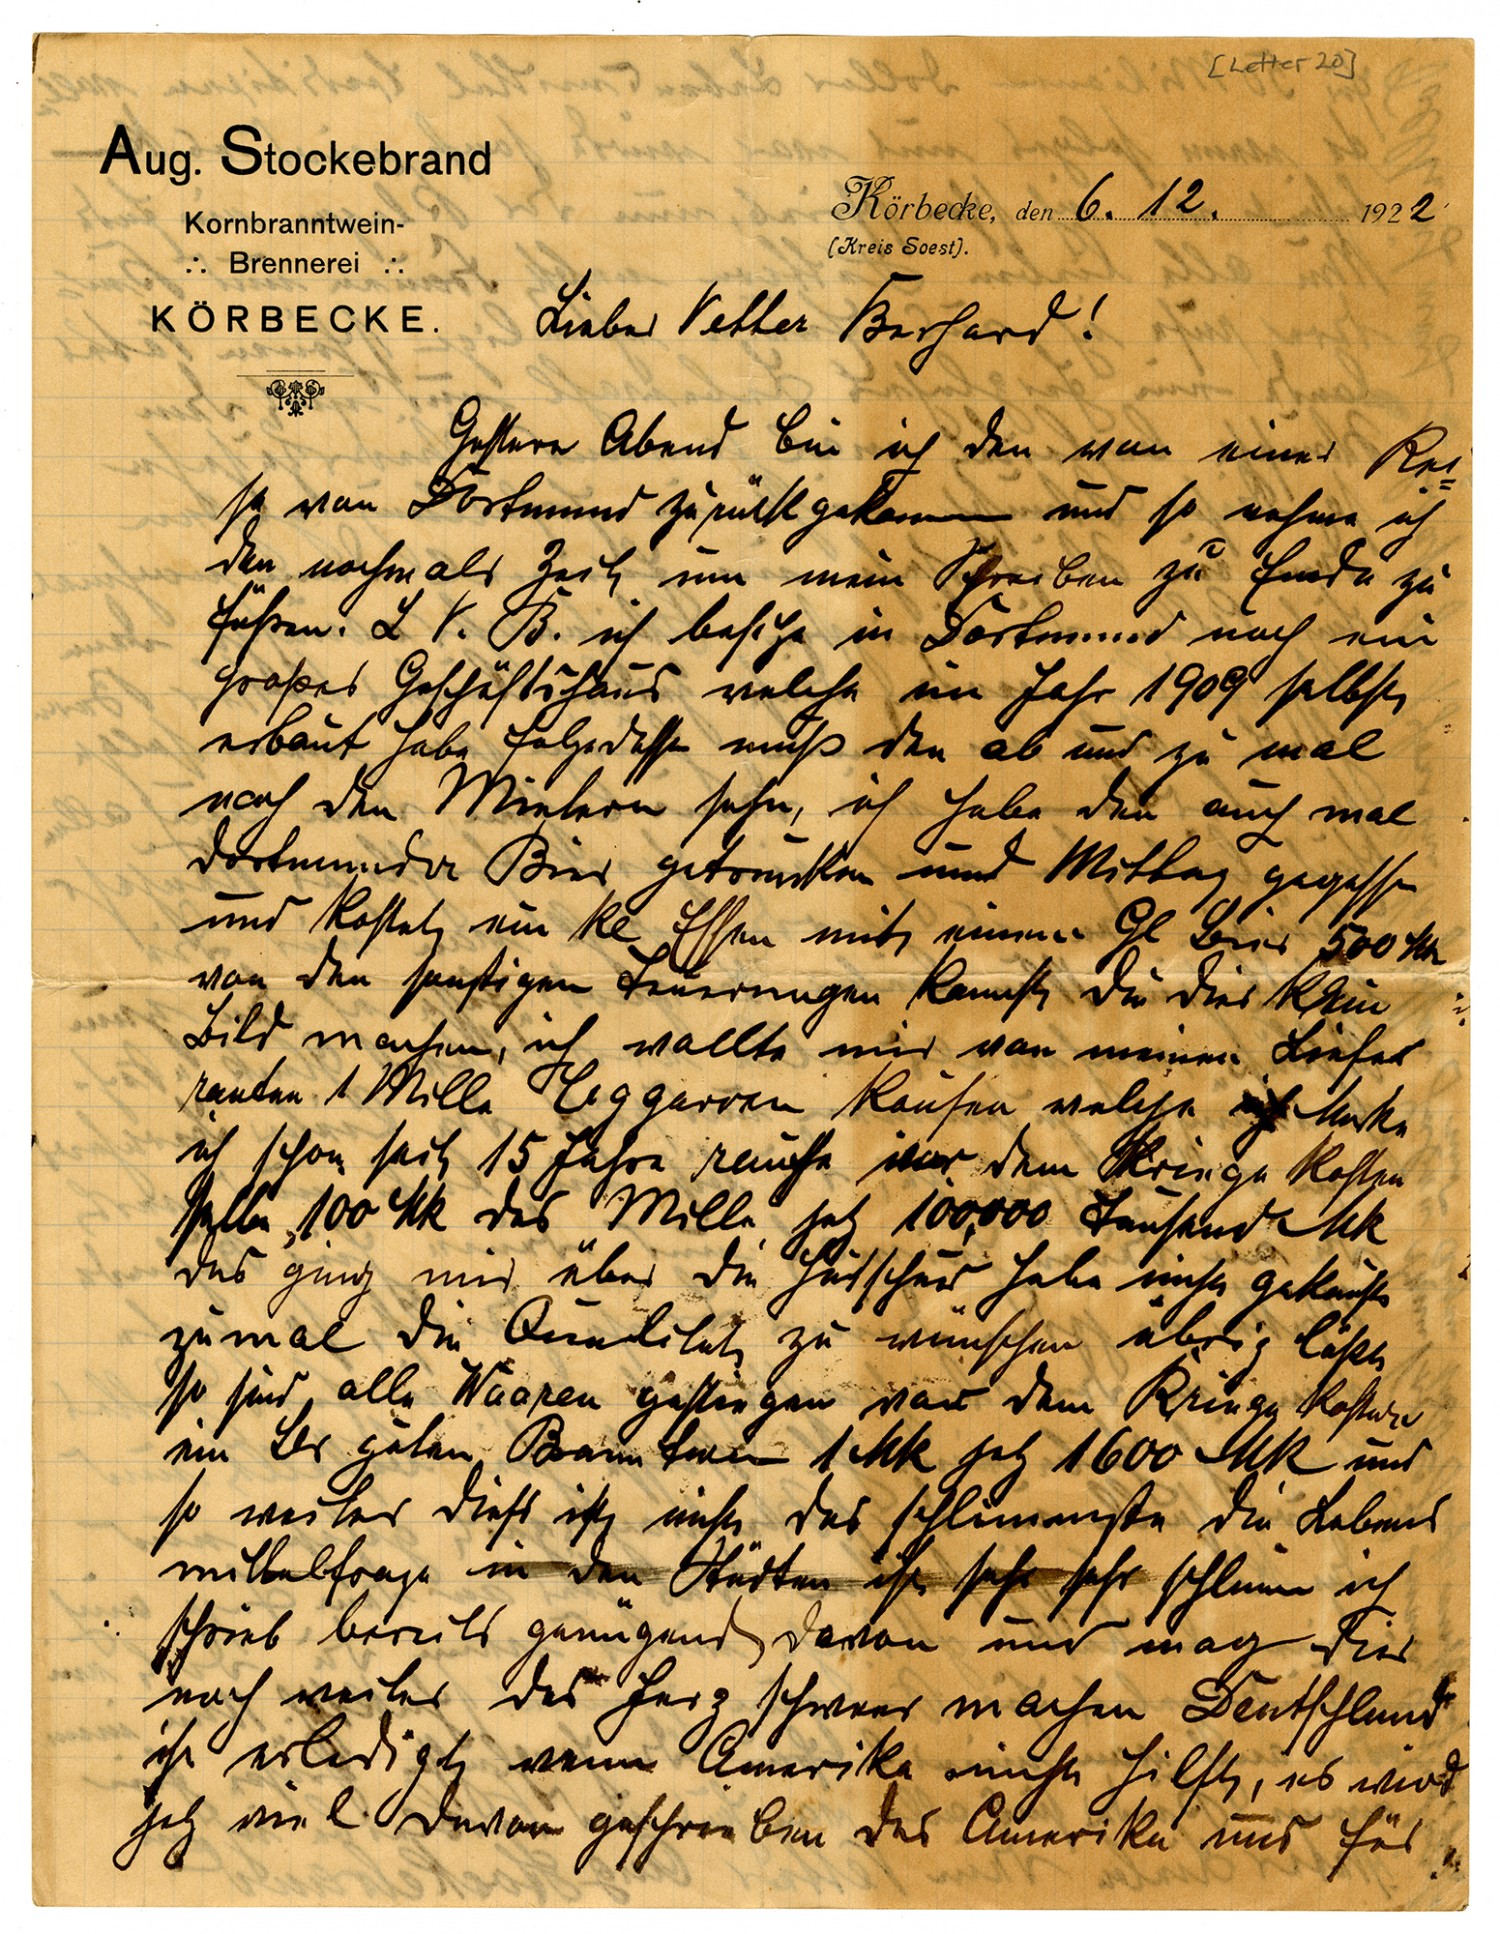 [Letter 20]
Aug. Stockebrand
Kornbranntwein-
∴ Brennerei ∴
KÖRBECKE.
Körbecke, den 6. 12. 1922
(Kreis Soest).
Lieber Vetter Berhard!
Gestern Abend bin ich den von einer Rei=
se von Dortmund zurückgekommen und so nehme ich
den nochmals Zeit um mein Schreiben zu Ende zu
führen. L V. B. ich besitze in Dortmund noch ein
großes Geschäftshaus welche im Jahr 1909 selbst
erbaut habe folgedesse muß den ab und zu mal
nach den Mietern sehn, ich habe den auch mal
Dortmunder Bier getrunken und Mittag gegessen
und kostet ein kl Essen mit einem Gl Bier 500 Mk
von den sonstigen Teuerungen kannst Du Dier klein
Bild machen, ich wollte mir von meinen Liefer
ranten 1 Mille Ziggarren kaufen welche Marke
ich schon seit 15 Jahre rauche vor dem Kriege kosten
selbe 100 Mk das Mille jetz 100,000 Tausend Mk
das ging mir über die Hutschnur habe nicht gekauft
zumal die Qualität zu wünschen übrig läßt
so sind alle Waaren gestiegen vor dem Kriege kosten
ein Ltr guten Branntwein 1 Mk jetz 1600 Mk und
so weiter dieß ist nicht das schlimmste die Lebens
mittelfrage in den Städten ist sehr sehr schlimm ich
schrieb bereits genügend davon und mag Dier
noch weiter das Herz schwer machen Deutschland
ist erledigt wenn Amerika nicht hilft, es wird
jetz viel davon geschrieben das Amerika uns für